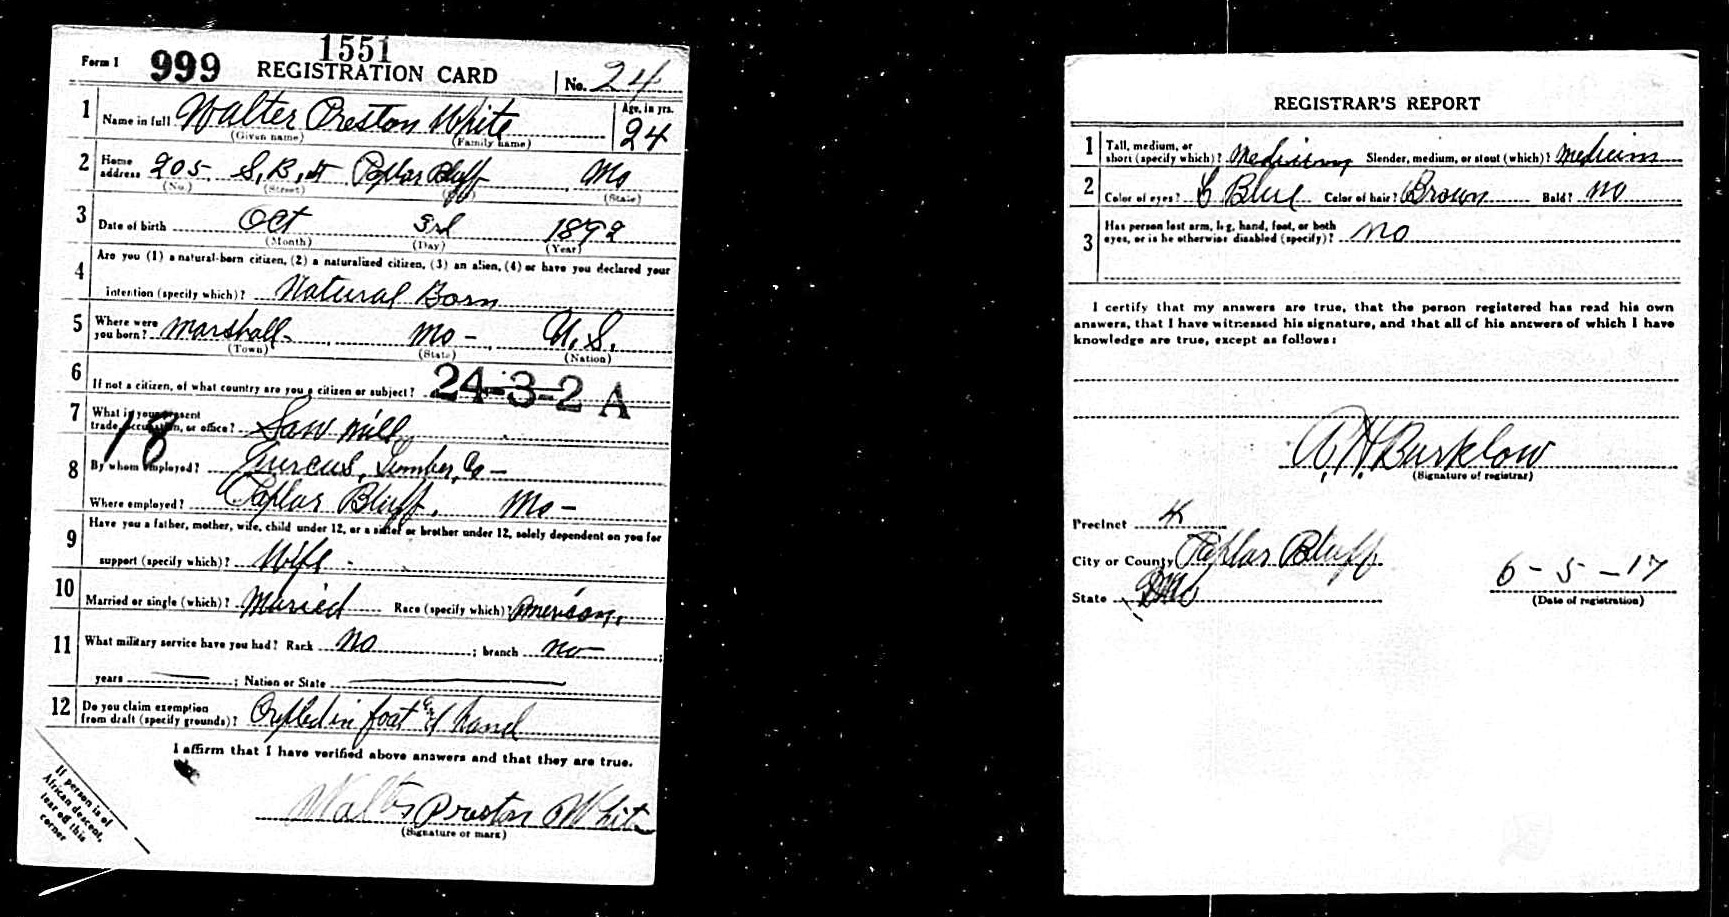 1551
Form 1 999 REGISTRATION CARD No. 24
1 Name in full Walter Preston White Age, in yrs. 24
(Given name) (Family name)
2 Home address 205 S. B. st Poplar Bluff Mo
(No.) (Street) (State)
3 Date of birth Oct 3rd 1892
(Month) (Day) (Year)
4 Are you (1) a natural-born citizen, (2) a naturalized citizen, (3) an alien, (4) or have you declared your
intention (specify which)? Natural Born
5 Where were you born? Marshall - Mo - U.S.
(Town) (State) (Nation)
6 If not a citizen, of what country are you a citizen or subject? 24-3-2 A
7 What is your present trade, occupation, or office? Saw mill
18
8 By whom employed? Quercus Lumber Co -
Where employed? Poplar Bluff, Mo -
9 Have you a father, mother, wife, child under 12, or a sister or brother under 12, solely dependent on you for
support (specify which)? Wife -
10 Married or single (which)? Maried Race (specify which)? American
11 What military service have you had? Rank No ; branch no ;
years ; Nation or State
12 Do you claim exemption from draft (specify grounds)? Cripled in foot and hand
I affirm that I have verified above answers and that they are true.
Walter Preston White
(Signature or mark)
If person is of
African descent,
tear off this
corner
REGISTRAR'S REPORT
1 Tall, medium, or short (specify which)? Medium Slender, medium, or stout (which)? medium
2 Color of eyes? L Blue Color of hair? Brown Bald? No
3 Has person lost arm, leg, hand, foot, or both eyes, or is he otherwise disabled (specify)? No
I certify that my answers are true, that the person registered has read his own
answers, that I have witnessed his signature, and that all of his answers of which I have
knowledge are true, except as follows:
A. H. Burklow
(Signature of registrar)
Precinct 4
City or County Poplar Bluff
State Mo
6-5-17
(Date of registration)